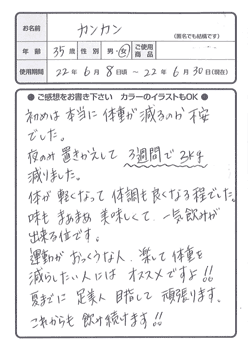 お名前 カンカン (匿名でも結構です)
年齢 35歳 性別 男・女 ご使用商品
使用期間 22年 6月 8日頃 ～ 22年 6月30日(現在)
● ご感想をお書き下さい カラーのイラストもOK ●
初めは本当に体重が減るのか不安
でした。
夜のみ置きかえして 3週間で3kg
減りました。
体が軽くなって体調も良くなる程でした。
味もまあまあ美味しくて、一気飲みが
出来る位です。
運動がおっくうな人、楽して体重を
減らしたい人にはオススメですよ!!
夏までに 足美人 目指して 頑張ります。
これからも飲み続けます!!